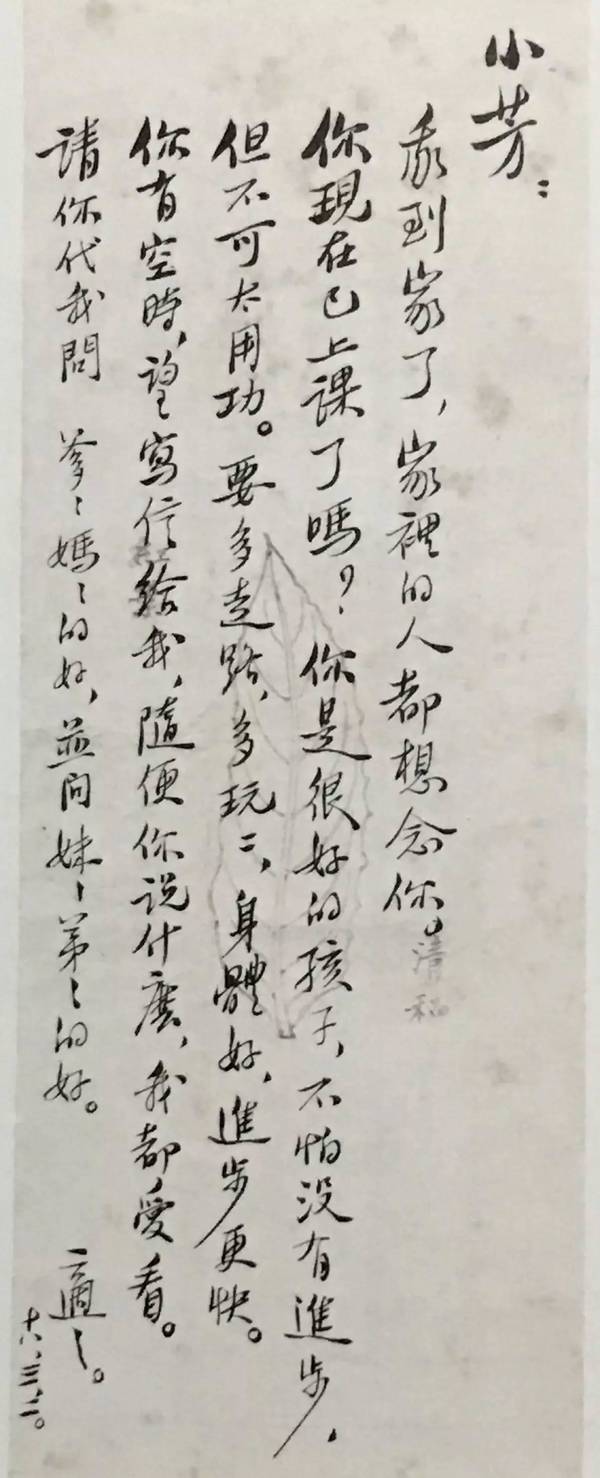 小芳：
我到家了，家裡的人都想念你。
你現在已上課了嗎？你是很好的孩子，不怕没有進步，
但不可太用功。要多走路，多玩〻，身體好，進步更快。
你有空時，望寫信給我，隨便你説什麽，我都愛看。
請你代我問 爹〻媽〻的好，並问妹〻弟〻的好。
適之。
十八、三、二。
清秘